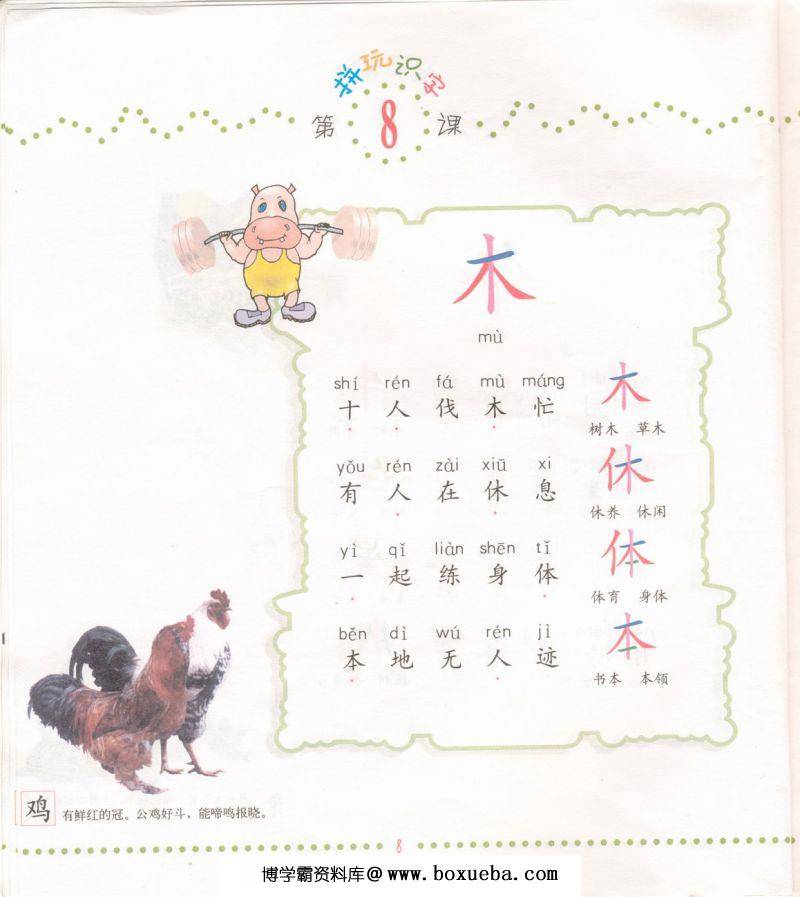 拼玩识字
第 8 课
木
mù
shí rén fá mù máng
十 人 伐 木 忙
木
树木 草木
yǒu rén zài xiū xi
有 人 在 休 息
休
休养 休闲
yì qǐ liàn shēn tǐ
一 起 练 身 体
体
体育 身体
běn dì wú rén jì
本 地 无 人 迹
本
书本 本领
鸡 有鲜红的冠。公鸡好斗，能啼鸣报晓。
8
博学霸资料库@www.boxueba.com